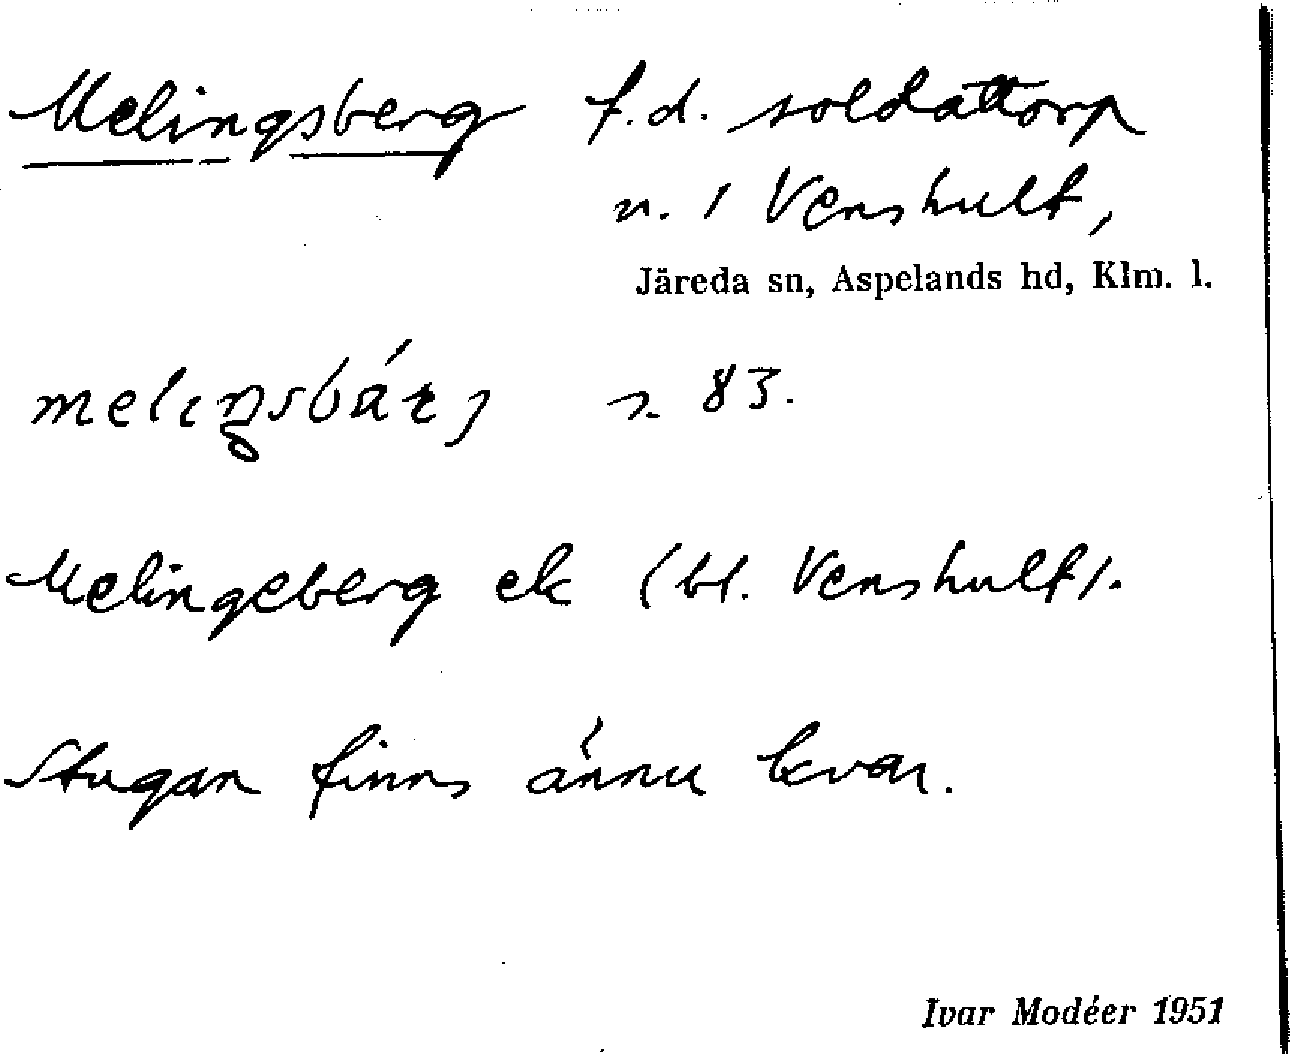 Melingsberg f.d. soldattorp
n. 1 Venshult,
Järeda sn, Aspelands hd, Klm. l.
83.
Melingeberg ek (bl. Venshult).
Stugan finns ännu kvar.
Ivar Modéer 1951